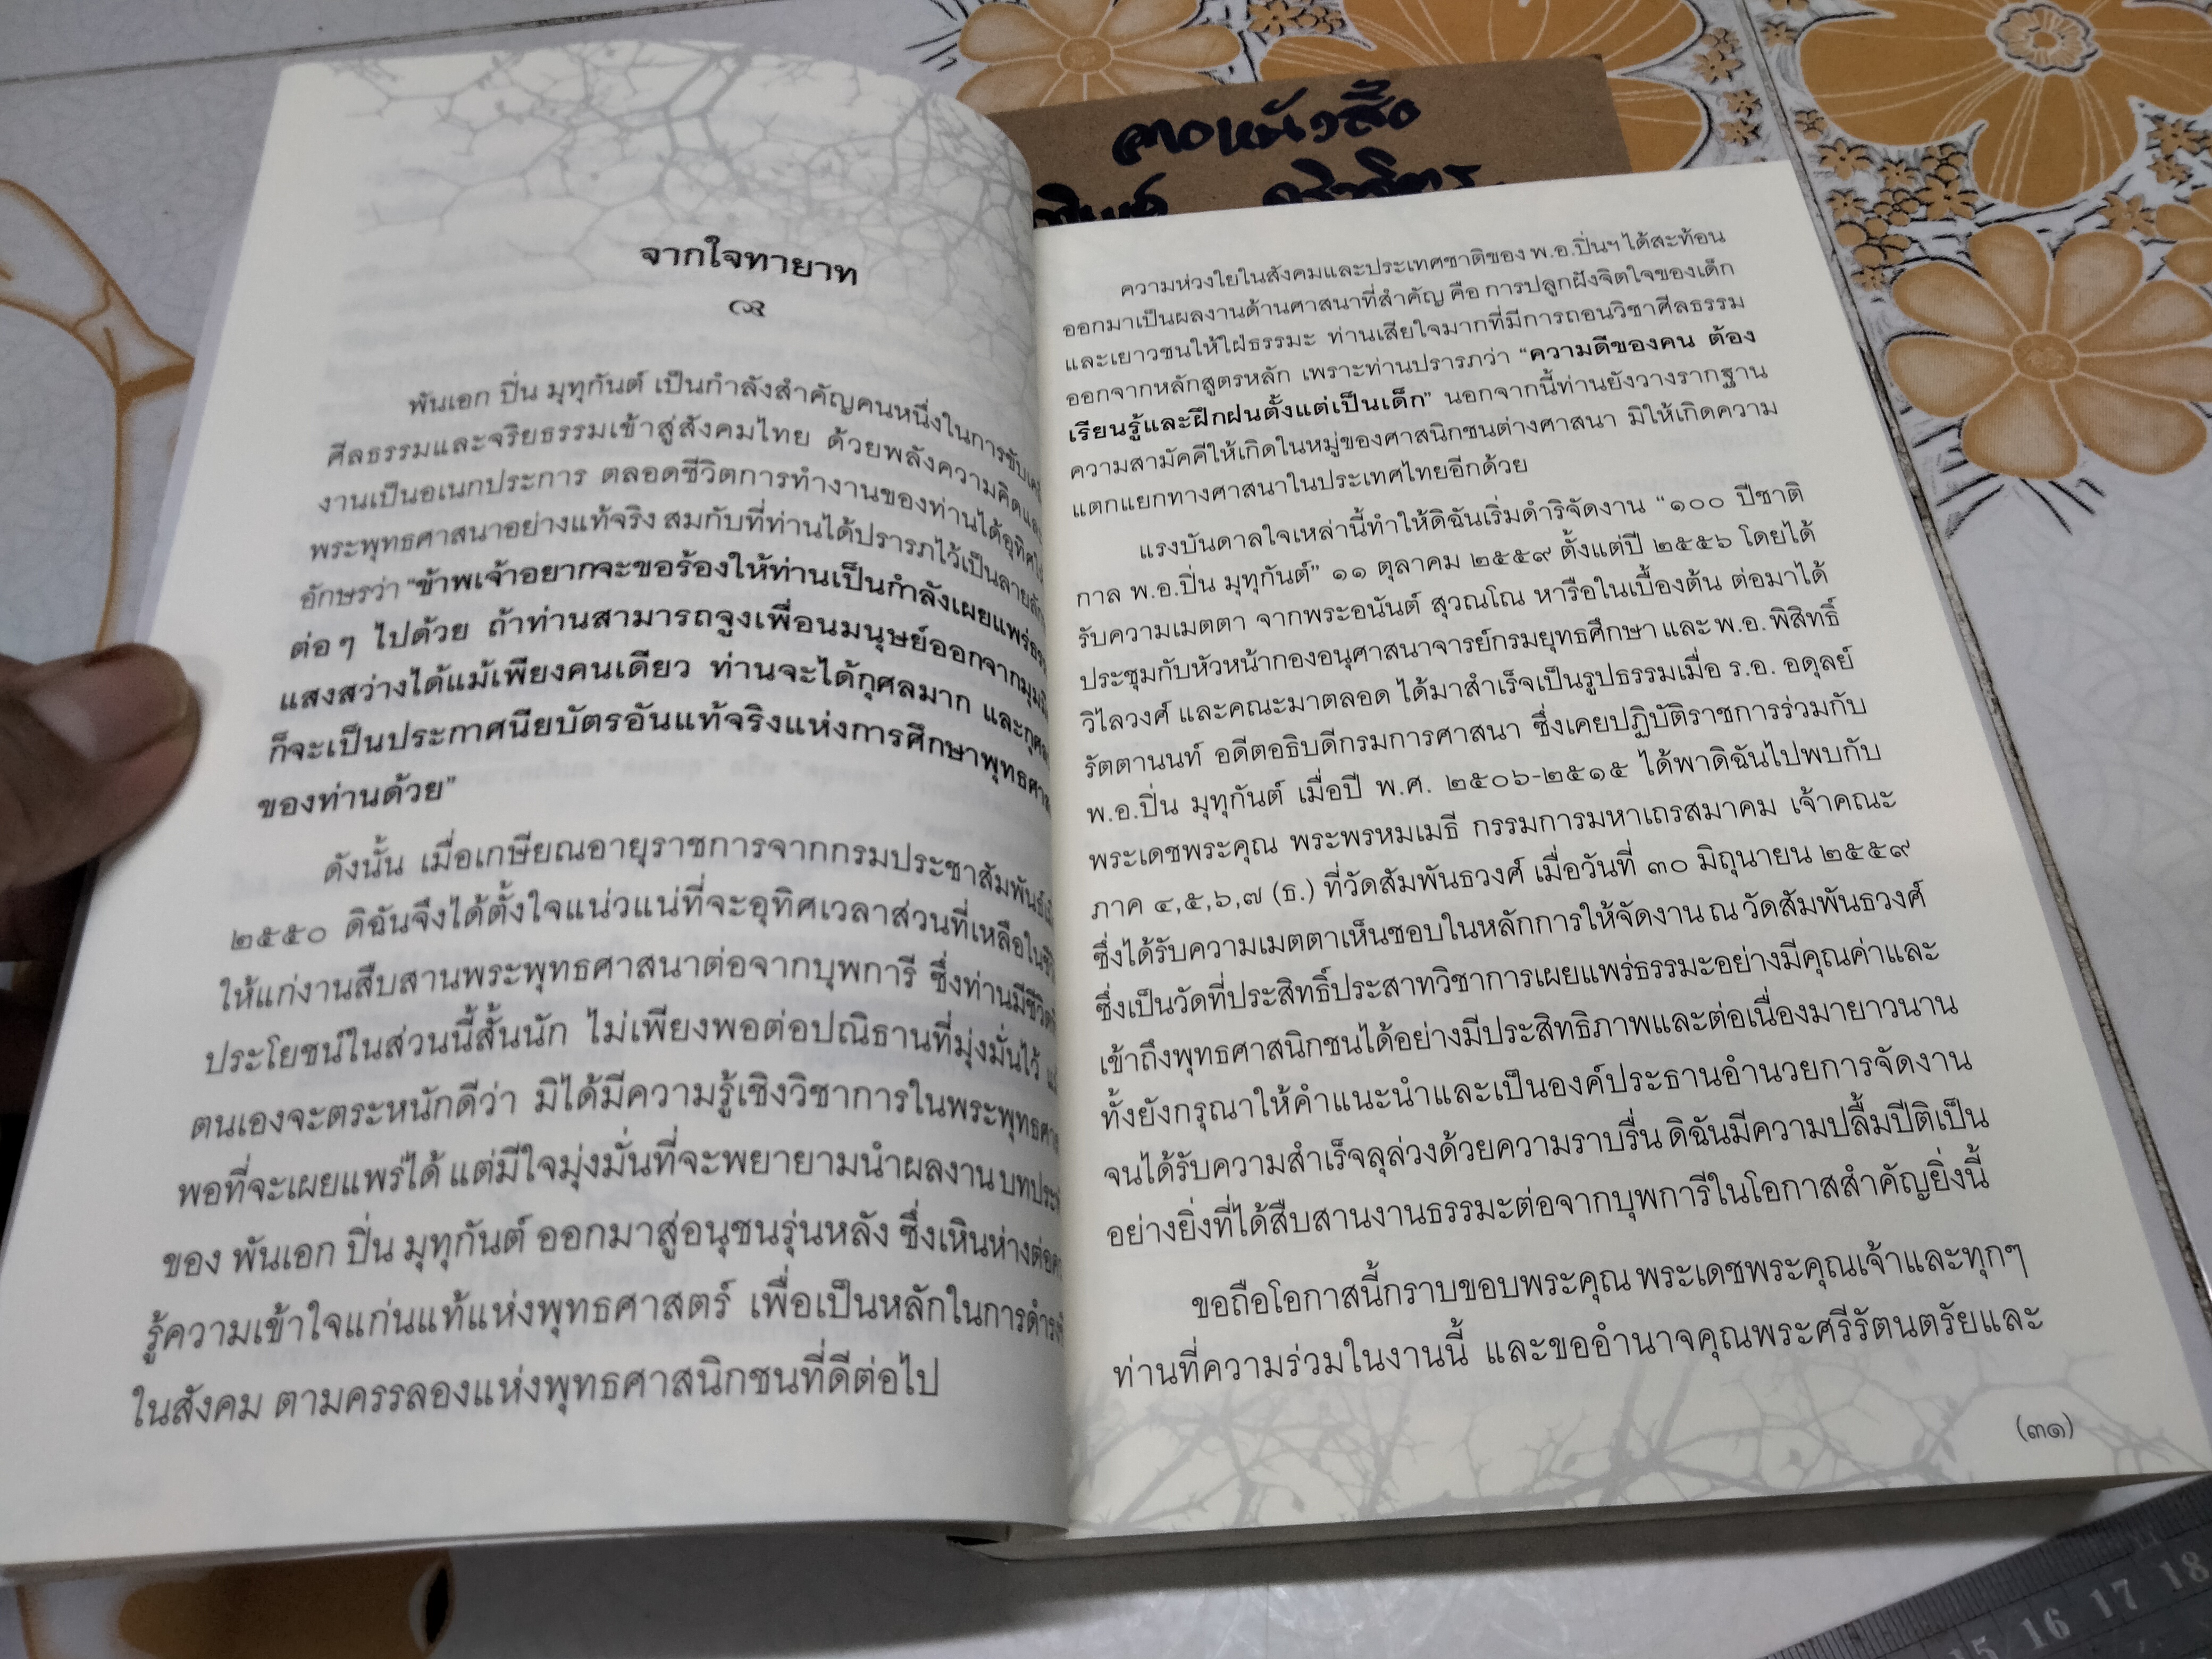 จากใจทายาท
พันเอก ปิ่น มุทุกันต์ เป็นกำลังสำคัญคนหนึ่งในการขับเคลื่
ศีลธรรมและจริยธรรมเข้าสู่สังคมไทย ด้วยพลังความคิดและ
งานเป็นอเนกประการ ตลอดชีวิตการทำงานของท่านได้อุทิศให้
พระพุทธศาสนาอย่างแท้จริง สมกับที่ท่านได้ปรารภไว้เป็นลายลัก
อักษรว่า “ข้าพเจ้าอยากจะขอร้องให้ท่านเป็นกำลังเผยแพร่ธรร
ต่อๆ ไปด้วย ถ้าท่านสามารถจูงเพื่อนมนุษย์ออกจากมุม
แสงสว่างได้แม้เพียงคนเดียว ท่านจะได้กุศลมาก และกุศล
ก็จะเป็นประกาศนียบัตรอันแท้จริงแห่งการศึกษาพุทธศาส
ของท่านด้วย”
ดังนั้น เมื่อเกษียณอายุราชการจากกรมประชาสัมพันธ์
๒๕๕๐ ดิฉันจึงได้ตั้งใจแน่วแน่ที่จะอุทิศเวลาส่วนที่เหลือในชีวิ
ให้แก่งานสืบสานพระพุทธศาสนาต่อจากบุพการี ซึ่งท่านมีชีวิต
ประโยชน์ในส่วนนี้สั้นนัก ไม่เพียงพอต่อปณิธานที่มุ่งมั่นไว้
ตนเองจะตระหนักดีว่า มิได้มีความรู้เชิงวิชาการในพระพุทธศาส
พอที่จะเผยแพร่ได้ แต่มีใจมุ่งมั่นที่จะพยายามนำผลงาน บทประ
ของ พันเอก ปิ่น มุทุกันต์ ออกมาสู่อนุชนรุ่นหลัง ซึ่งเหินห่างต่อ
รู้ความเข้าใจแก่นแท้แห่งพุทธศาสตร์ เพื่อเป็นหลักในการดำรง
ในสังคม ตามครรลองแห่งพุทธศาสนิกชนที่ดีต่อไป
คาดหนังสือ
ความห่วงใยในสังคมและประเทศชาติของ พ.อ.ปิ่นฯ ได้สะท้อน
ออกมาเป็นผลงานด้านศาสนาที่สำคัญ คือ การปลูกฝังจิตใจของเด็ก
และเยาวชนให้ใฝ่ธรรมะ ท่านเสียใจมากที่มีการถอนวิชาศีลธรรม
ออกจากหลักสูตรหลัก เพราะท่านปรารภว่า “ความดีของคน ต้อง
เรียนรู้และฝึกฝนตั้งแต่เป็นเด็ก” นอกจากนี้ท่านยังวางรากฐาน
ความสามัคคีให้เกิดในหมู่ของศาสนิกชนต่างศาสนา มิให้เกิดความ
แตกแยกทางศาสนาในประเทศไทยอีกด้วย
แรงบันดาลใจเหล่านี้ทำให้ดิฉันเริ่มดำริจัดงาน “๑๐๐ ปีชาติ
กาล พ.อ.ปิ่น มุทุกันต์” ๑๑ ตุลาคม ๒๕๕๙ ตั้งแต่ปี ๒๕๕๖ โดยได้
รับความเมตตา จากพระอนันต์ สุวณโณ หารือในเบื้องต้น ต่อมาได้
ประชุมกับหัวหน้ากองอนุศาสนาจารย์กรมยุทธศึกษา และ พ.อ. พิสิทธิ์
วิไลวงศ์ และคณะมาตลอด ได้มาสำเร็จเป็นรูปธรรมเมื่อ ร.อ. อดุลย์
รัตตานนท์ อดีตอธิบดีกรมการศาสนา ซึ่งเคยปฏิบัติราชการร่วมกับ
พ.อ.ปิ่น มุทุกันต์ เมื่อปี พ.ศ. ๒๕๐๖-๒๕๑๕ ได้พาดิฉันไปพบกับ
พระเดชพระคุณ พระพรหมเมธี กรรมการมหาเถรสมาคม เจ้าคณะ
ภาค ๔,๕,๖,๗ (ธ.) ที่วัดสัมพันธวงศ์ เมื่อวันที่ ๓๐ มิถุนายน ๒๕๕๙
ซึ่งได้รับความเมตตาเห็นชอบในหลักการให้จัดงาน ณ วัดสัมพันธวงศ์
ซึ่งเป็นวัดที่ประสิทธิ์ประสาทวิชาการเผยแพร่ธรรมะอย่างมีคุณค่าและ
เข้าถึงพุทธศาสนิกชนได้อย่างมีประสิทธิภาพและต่อเนื่องมายาวนาน
ทั้งยังกรุณาให้คำแนะนำและเป็นองค์ประธานอำนวยการจัดงาน
จนได้รับความสำเร็จลุล่วงด้วยความราบรื่น ดิฉันมีความปลื้มปีติเป็น
อย่างยิ่งที่ได้สืบสานงานธรรมะต่อจากบุพการีในโอกาสสำคัญยิ่งนี้
ขอถือโอกาสนี้กราบขอบพระคุณ พระเดชพระคุณเจ้าและทุกๆ
ท่านที่ความร่วมในงานนี้ และขออำนาจคุณพระศรีรัตนตรัยและ
(๓๑)
15 16 17 18